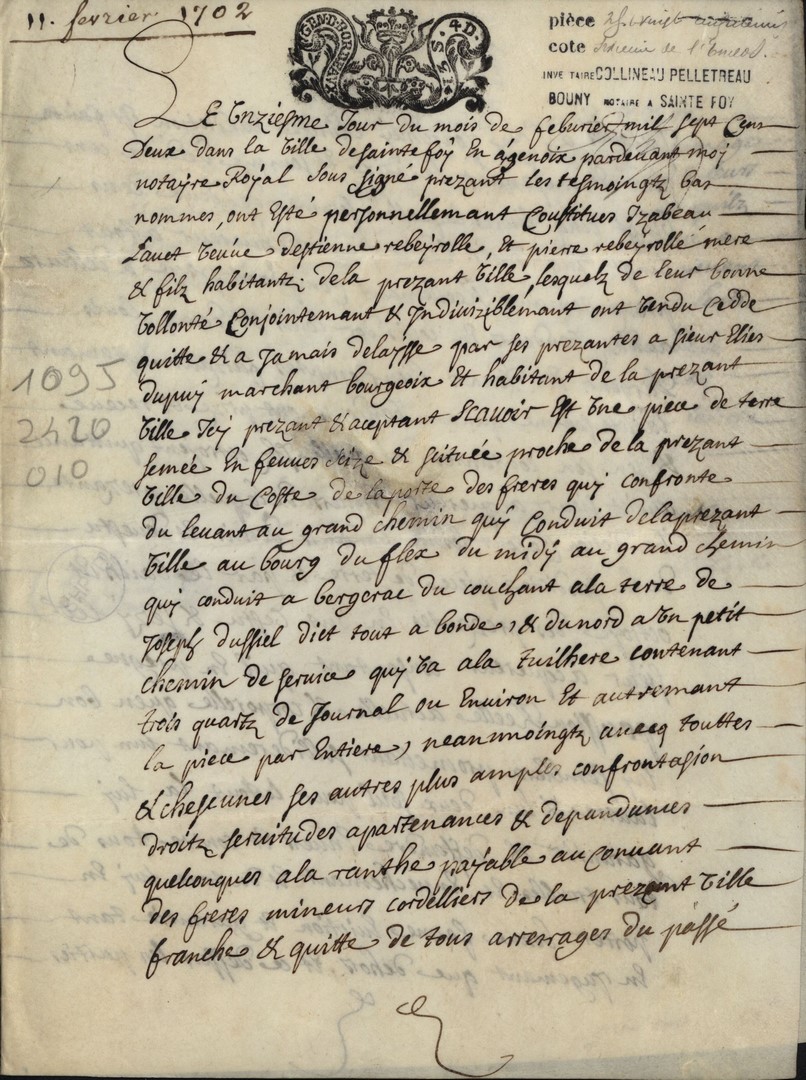 11. fevrier. 1702
GEN. D. BORDEAUX
S. 4 D.
pièce
cote de l'
INVE TAIRE COLLINEAU PELLETREAU
BOUNY NOTAIRE A SAINTE FOY
Le Unziesme Jour du mois de feburier mil sept Cens
Deux dans la Ville de sainte foy En agenoix pardevant moy
notayre Royal sous signe prezant les tesmoingtz bas
nommes, ont Esté personnellemant Constitues Izabeau
Lauet veuve destienne rebeyrolle, & pierre rebeyrolle mere
& filz habitantz de la prezant Ville, lesquelz de leur bonne
Vollonté Conjointemant & Indiviziblemant ont Vendu Cedde
quitte & a Jamais delaysse par ses prezantes a sieur Elies
dupuy marchant bourgeoix Et habitant de la prezant
Ville Icy prezant & aceptant Scavoir Est Une piece de terre
semée En feuves size & scituée proche de la prezant
Ville du Coste de la porte des freres quy confronte
du levant au grand chemin quy Conduit de la prezant
Ville au bourg du flex du midy au grand chemin
quy conduit a bergerac du couchant a la terre de
Joseph dussiel dict tout a bonde, & du nord a Un petit
chemin de service quy Va a la tuilhere contenant
trois quartz de Journal ou Environ Et autremant
la piece par Entiere, neanmoingtz avecq touttes
& chescunes ses autres plus amples confrontasion
droitz servitudes apartenances & depandances
quelconques a la ranthe payable au Convant
des freres mineurs cordelliers de la prezant Ville
franche & quitte de tous arresrages du passé
1095
2420
010